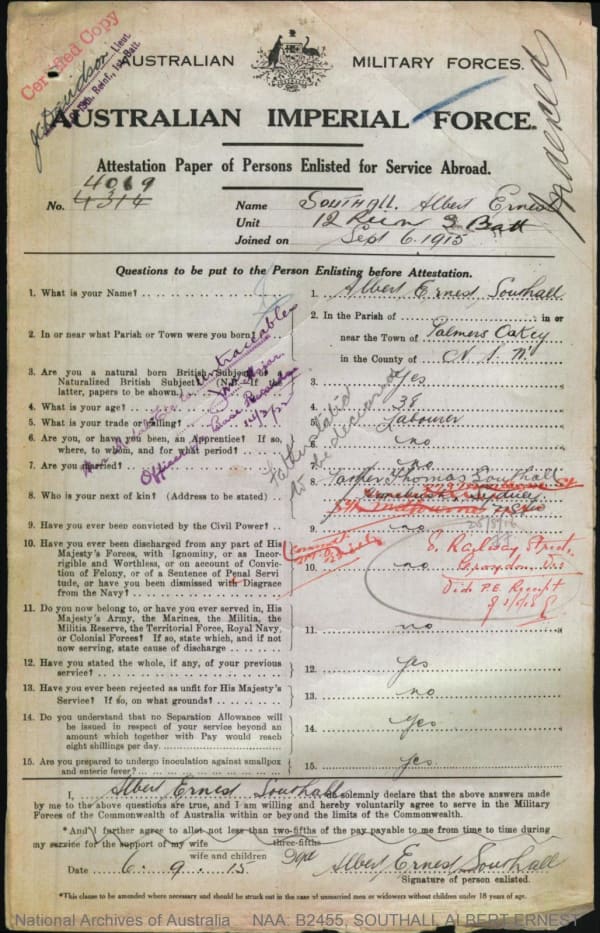 Certified Copy
J C Davidson Lieut
19th Reinf. 1st Batt
AUSTRALIAN MILITARY FORCES.
AUSTRALIAN IMPERIAL FORCE.
Indexed
Attestation Paper of Persons Enlisted for Service Abroad.
4069
No. 4314
Name SOUTHALL. Albert Ernest
Unit 12 Rein 3 Batt
Joined on Sept 6. 1915
Questions to be put to the Person Enlisting before Attestation.
1. What is your Name? 1. Albert Ernest Southall
2. In or near what Parish or Town were you born? 2. In the Parish of in or
near the Town of Palmers Oakey
in the County of N.S.W.
3. Are you a natural born British Subject or a
Naturalized British Subject? (N.B. If the
latter, papers to be shown.) 3. Yes
4. What is your age? 4. 38
5. What is your trade or calling? 5. Labourer
6. Are you, or have you been, an Apprentice? If so,
where, to whom, and for what period? 6. no
7. Are you married? 7. no
8. Who is your next of kin? (Address to be stated) 8. Father Thomas Southall
Sydney
Melbourne
untraceable
Officer
Base Records
Father stated
to be deceased
9. Have you ever been convicted by the Civil Power? 9. no
8. Railway Street
Vic
10. Have you ever been discharged from any part of His
Majesty's Forces, with Ignominy, or as Incor-
rigible and Worthless, or on account of Convic-
tion of Felony, or of a Sentence of Penal Servi-
tude, or have you been dismissed with Disgrace
from the Navy? 10. no
11. Do you now belong to, or have you ever served in, His
Majesty's Army, the Marines, the Militia, the
Militia Reserve, the Territorial Force, Royal Navy,
or Colonial Forces? If so, state which, and if not
now serving, state cause of discharge 11. no
12. Have you stated the whole, if any, of your previous
service? 12. yes
13. Have you ever been rejected as unfit for His Majesty's
Service? If so, on what grounds? 13. no
14. Do you understand that no Separation Allowance will
be issued in respect of your service beyond an
amount which together with Pay would reach
eight shillings per day. 14. Yes
15. Are you prepared to undergo inoculation against smallpox
and enteric fever? 15. Yes
I, Albert Ernest Southall do solemnly declare that the above answers made
by me to the above questions are true, and I am willing and hereby voluntarily agree to serve in the Military
Forces of the Commonwealth of Australia within or beyond the limits of the Commonwealth.
*And I further agree to allot not less than two-fifths of the pay payable to me from time to time during
three-fifths
my service for the support of my wife
wife and children
Date 6. 9. 15 Albert Ernest Southall
Signature of person enlisted.
*This clause to be amended where necessary and should be struck out in the case of unmarried men or widowers without children under 18 years of age.
National Archives of Australia NAA: B2455, SOUTHALL ALBERT ERNEST